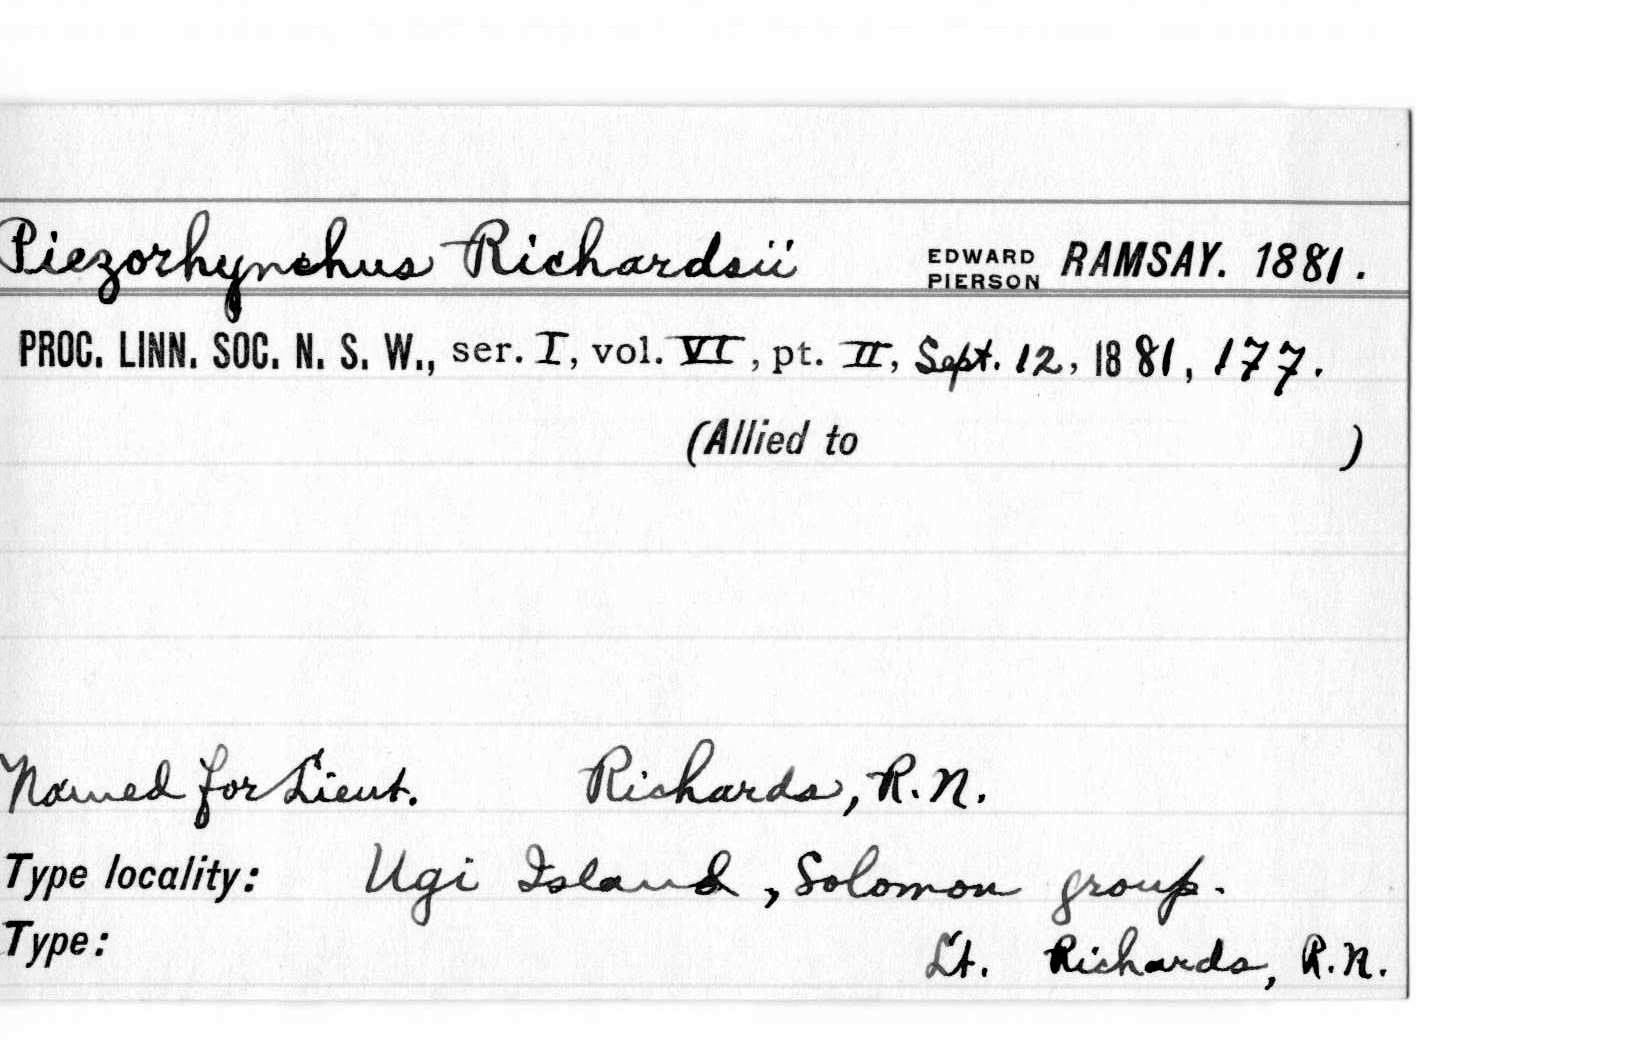 Piezorhynchus Richardsii EDWARD PIERSON RAMSAY. 1881.
PROC. LINN. SOC. N. S. W., ser. I, vol. VI, pt. II, Sept. 12, 1881, 177.
(Allied to )
Named for Lieut. Richards, R.N.
Type locality: Ugi Island, Solomon group.
Type: Lt. Richards, R.N.